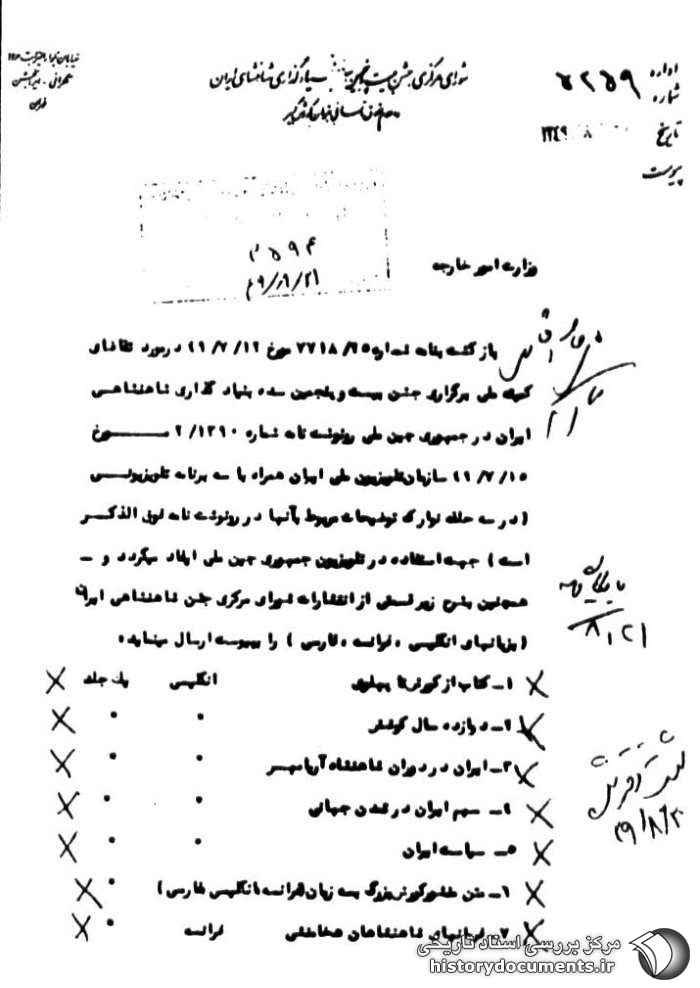 اداره
شماره ۵۲۵۹
تاریخ ۸ ۱۳۴۹
پیوست
شورای مرکزی جشن بنیانگذاری شاهنشاهی ایران
تهران
۳۵۹۴
۴۹/۸/۲۱
وزارت امور خارجه
بازگشت بنامه شماره ۷۷۱۸/۲۵ مورخ ۴۹/۷/۱۲ در مورد تقاضای
کمیته ملی برگزاری جشن بیست و پنجمین سده بنیاد گذاری شاهنشاهی
ایران در جمهوری چین ملی رونوشت نامه شماره ۲/۱۳۹۰ مورخ
۴۹/۷/۱۵ سازمان تلویزیون ملی ایران همراه با سه برنامه تلویزیونی
(در سه حلقه نوار که توضیحات مربوط بآنها در رونوشت نامه فوق الذکر
است) جهت استفاده در تلویزیون جمهوری چین ملی ایفاد میگردد و -
همچنین بشرح زیر قسمتی از انتشارات شورای مرکزی جشن شاهنشاهی ایران
(بزبانهای انگلیسی، فرانسه، فارسی) را بپیوست ارسال مینماید:
۱- کتاب از کورش تا پهلوی انگلیسی یک جلد
۲- دوازده سال کوشش " "
۳- ایران در دوران شاهنشاه آریامهر " "
۴- سهم ایران در تمدن جهانی " "
۵- سیاست ایران " "
۶- متن منشور کورش بزرگ بسه زبان (فرانسه انگلیسی فارسی) "
۷- فرمانهای شاهنشاهان هخامنشی فرانسه "
بایگانی شود
۸/۲۱
ثبت دفتر شد
۴۹/۸/۲۰
مرکز بررسی اسناد تاریخی
historydocuments.ir